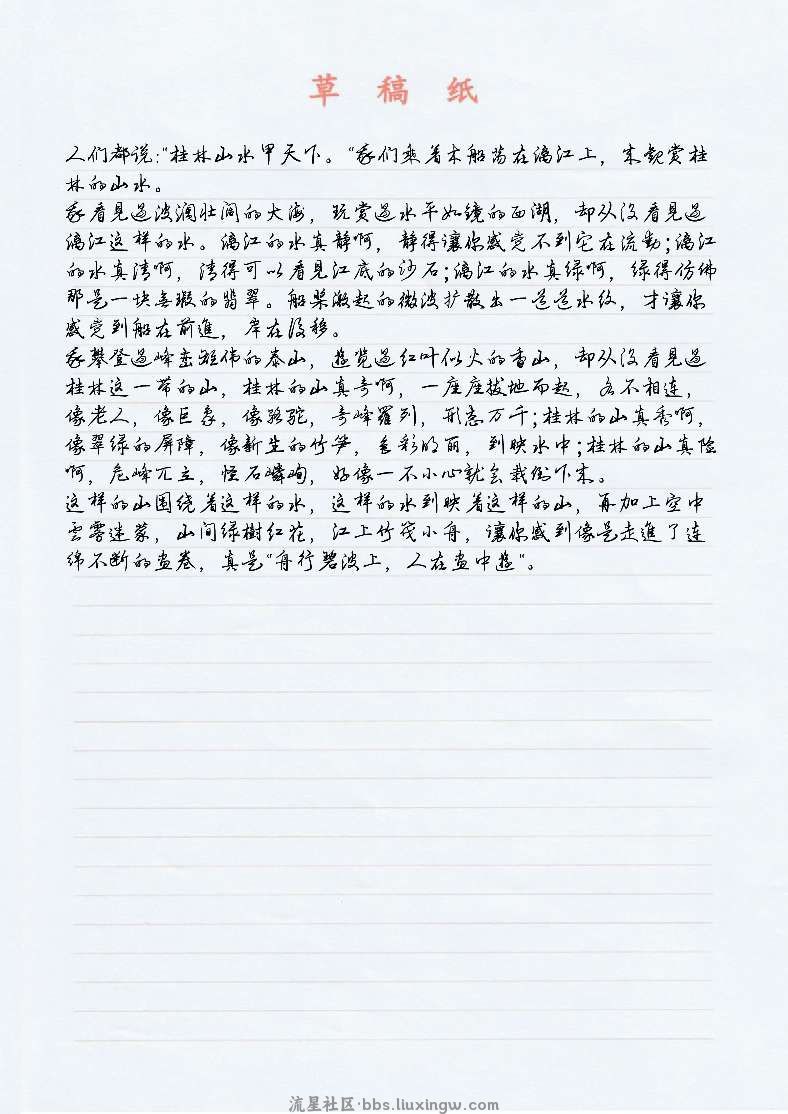 草稿纸
人们都说："桂林山水甲天下。"我们乘着木船荡在漓江上，来观赏桂
林的山水。
我看見过波澜壮阔的大海，玩赏过水平如镜的西湖，却从没看見过
漓江这样的水。漓江的水真静啊，静得讓你感觉不到它在流動；漓江
的水真清啊，清得可以看見江底的沙石；漓江的水真绿啊，绿得仿佛
那是一块无瑕的翡翠。船桨激起的微波扩散出一道道水纹，才讓你
感觉到船在前進，岸在後移。
我攀登过峰峦雄伟的泰山，遊览过红叶似火的香山，却从没看見过
桂林这一带的山，桂林的山真奇啊，一座座拔地而起，各不相连，
像老人，像巨象，像骆驼，奇峰羅列，形态万千；桂林的山真秀啊，
像翠绿的屏障，像新生的竹笋，色彩明丽，倒映水中；桂林的山真险
啊，危峰兀立，怪石嶙峋，好像一不小心就会栽倒下来。
这样的山围绕着这样的水，这样的水倒映着这样的山，再加上空中
雲雾迷蒙，山间绿樹红花，江上竹筏小舟，讓你感到像是走進了连
绵不断的画卷，真是"舟行碧波上，人在画中遊"。
流星社区·bbs.liuxingw.com